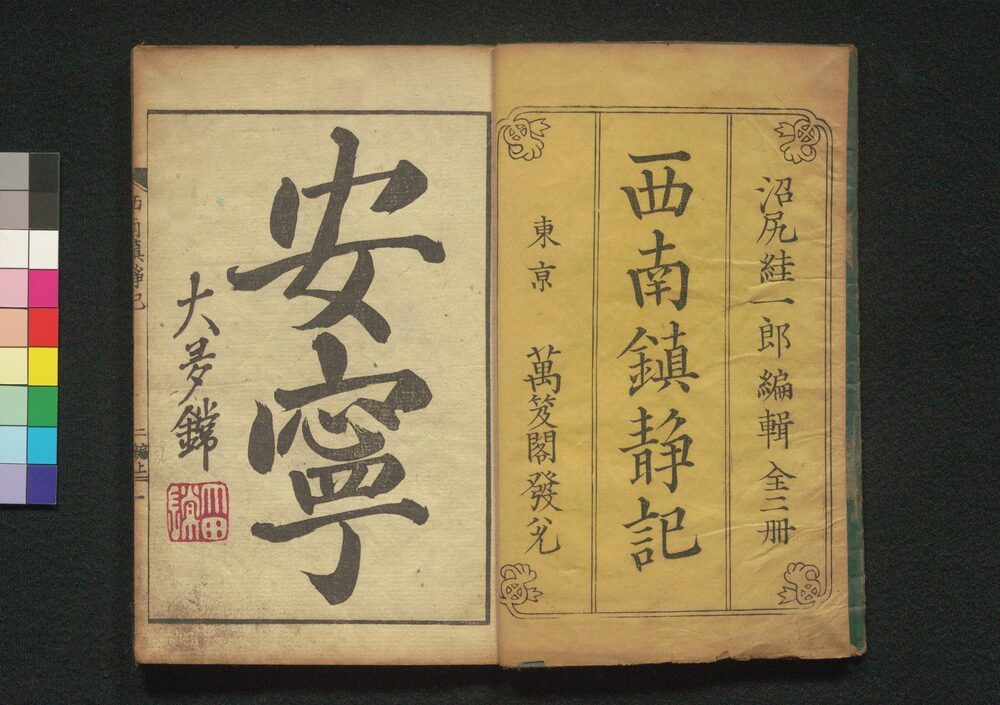 沼尻絓一郎編輯 全二冊
西南鎮静記
東京 萬笈閣發兌
安寧
西南鎮静記
二編上
一